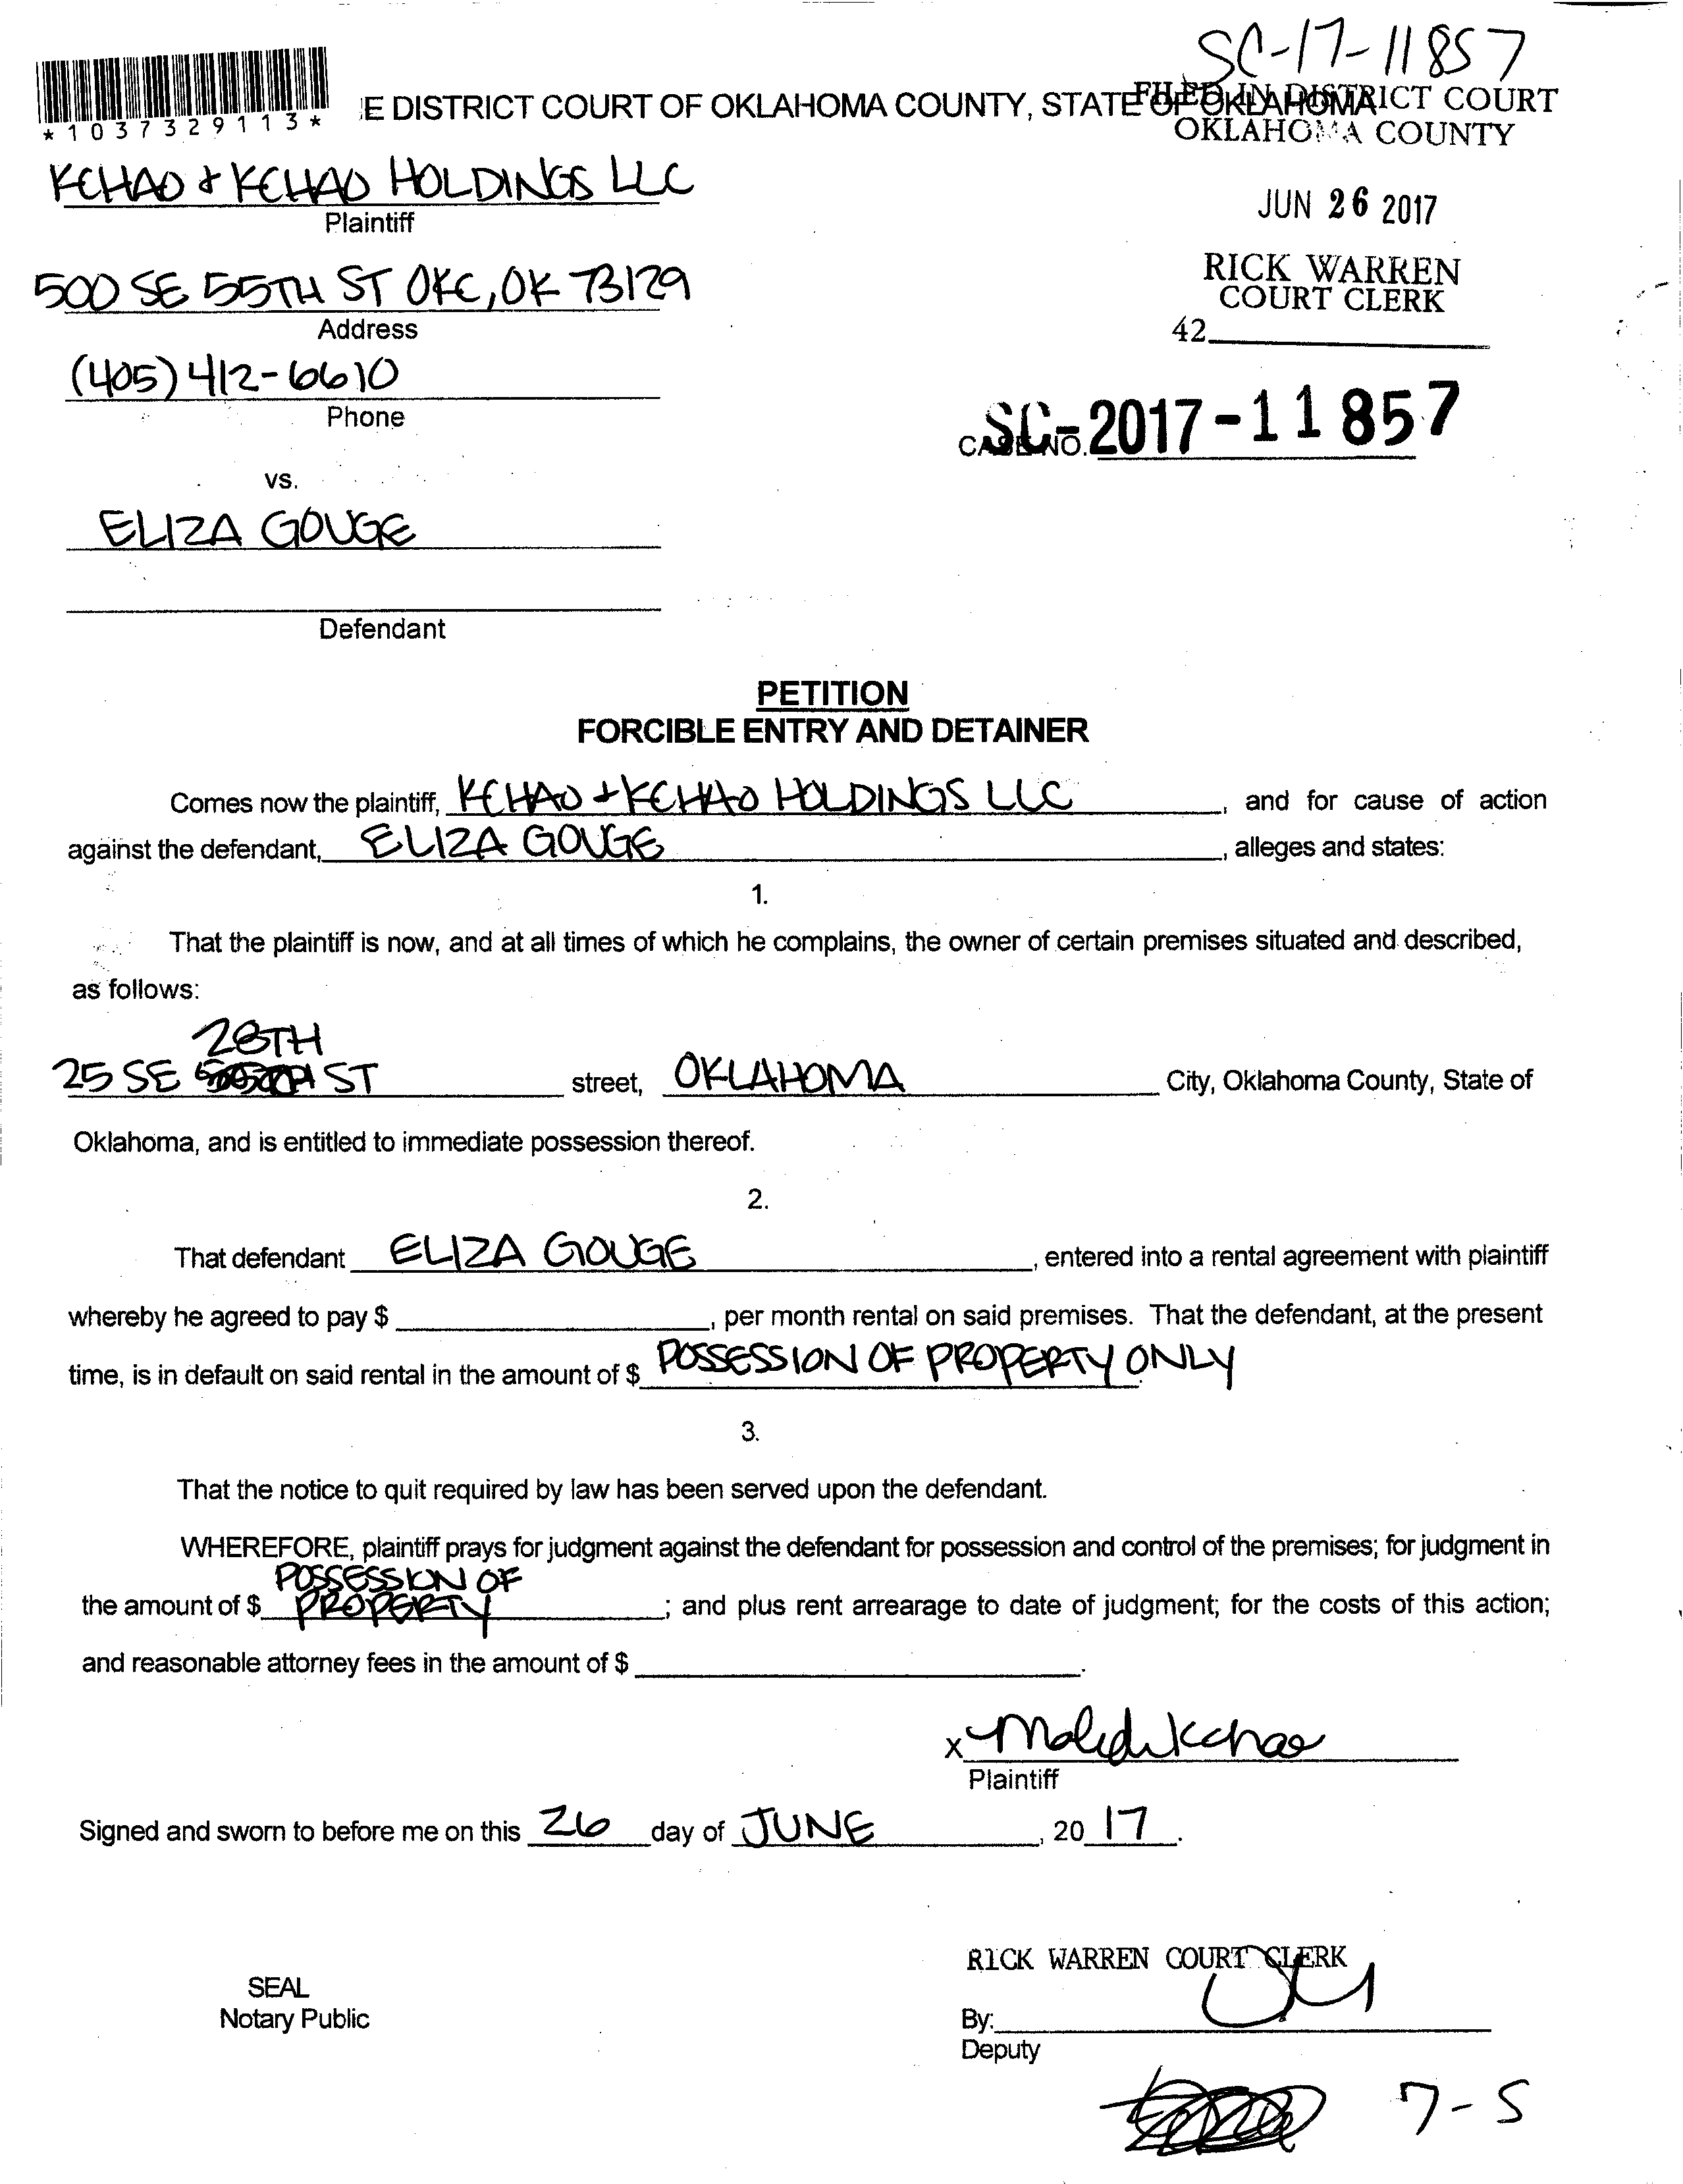 SC-17-11857
E DISTRICT COURT OF OKLAHOMA COUNTY, STATE OF OKLAHOMA
FILED IN DISTRICT COURT
OKLAHOMA COUNTY
*1037329113*
KCHAO & KCHAO HOLDINGS LLC
Plaintiff
JUN 26 2017
500 SE 55TH ST OKC, OK 73129
Address
RICK WARREN
COURT CLERK
42
(405) 412-6610
Phone
CASE NO. SC-2017-11857
vs.
ELIZA GOUGE
Defendant
PETITION
FORCIBLE ENTRY AND DETAINER
Comes now the plaintiff, KCHAO & KCHAO HOLDINGS LLC, and for cause of action
against the defendant, ELIZA GOUGE, alleges and states:
1.
That the plaintiff is now, and at all times of which he complains, the owner of certain premises situated and described,
as follows:
28TH
25 SE ST street, OKLAHOMA City, Oklahoma County, State of
Oklahoma, and is entitled to immediate possession thereof.
2.
That defendant ELIZA GOUGE, entered into a rental agreement with plaintiff
whereby he agreed to pay $, per month rental on said premises. That the defendant, at the present
time, is in default on said rental in the amount of $ POSSESSION OF PROPERTY ONLY.
3.
That the notice to quit required by law has been served upon the defendant.
WHEREFORE, plaintiff prays for judgment against the defendant for possession and control of the premises; for judgment in
POSSESSION OF
the amount of $ PROPERTY; and plus rent arrearage to date of judgment; for the costs of this action;
and reasonable attorney fees in the amount of $.
x
Plaintiff
Signed and sworn to before me on this 26 day of JUNE, 20 17.
RICK WARREN COURT CLERK
SEAL
Notary Public
By:
Deputy
7-5